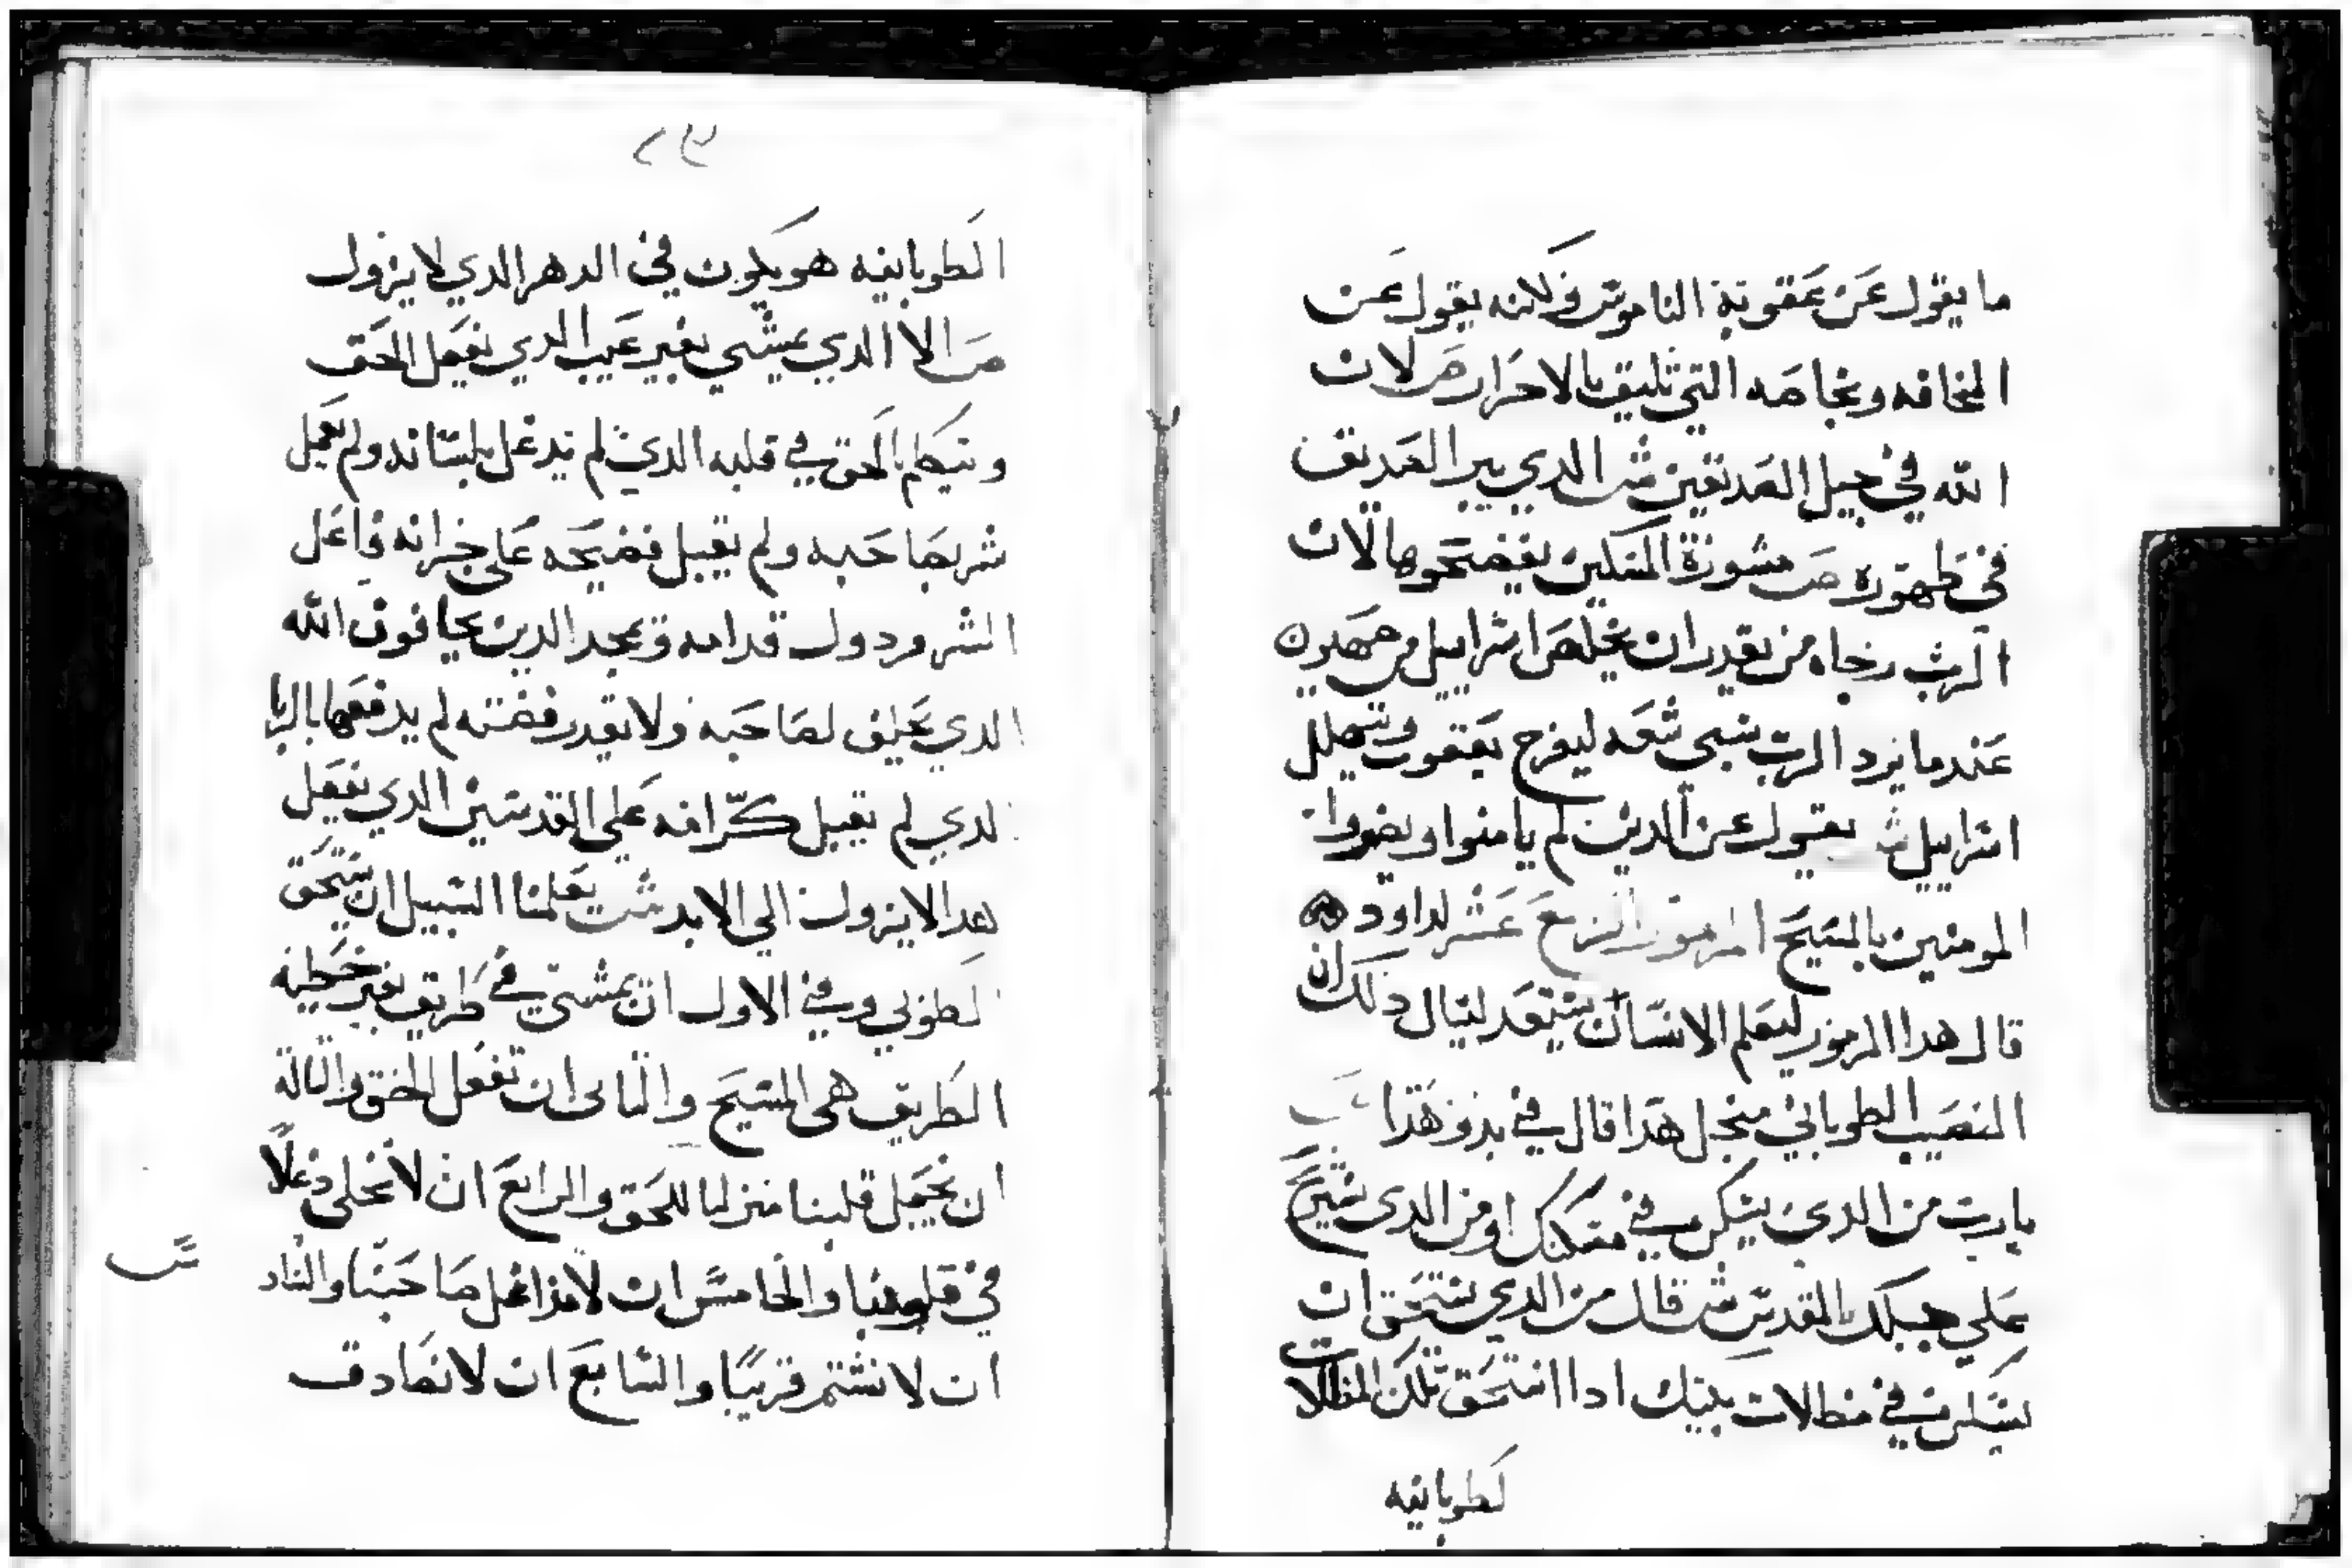 ما يقول عن عقوبة الناموس ولانه يقول عن
المخافه وبخاصه التي تليق بالاحرار ص لان
الله في جيل الصديقين ش الدي يبر الصديق
في طهوره ص مشورة المسكين يفضحوها لان
الرب رجاه من يقدر ان يخلص اسراييل من صهيون
عندما يرد الرب سبي شعبه ليفرح يعقوب ويتهلل
اسراييل ش يقول عن الدين لم يامنوا ويضروا
المومنين بالمسيح المزمور الرابع عشر لداود
قال هدا المزمور ليعلم الانسان يستعد لينال دلك ان
النصيب الطوباني منجل هدا قال في بدو هدا
يارب من الدي يسكن في مسكنك او من الدي يستريح
علي جبلك المقدس ش قال من الدي يستحق ان
يسكن في مظالات بيتك ادا استحق تلك المظالات
لطوبانيه
٢٣
الطوبانيه هو يكون في الدهر الدي لا يزول
ص الا الدي يمشي بغير عيب الدي يفعل الحق
ويتكلم بالحق في قلبه الدي لم يدغل بلسانه ولم يعمل
شر بصاحبه ولم يقبل فضيحه علي جيرانه فاعل
الشر مردول قدامه ويمجد الدين يخافون الله
الدي يحلف لصاحبه ولا يغدر وفضته لم يدفعها بالربا
الدي لم يقبل كرامه علي القديسين الدي يفعل
هدا لا يزول الي الابد ش يعلمنا السبيل ان يستحق
لطوبي وفي الاول ان يمشي في طريق بغير خطيه
الطريق هي المسيح والتاني ان تفعل الحق والتالت
ان نجعل قلبنا منزلا للحق والرابع ان لا نخلي دغلا
في قلوبنا والخامس ان لا ندغل صاحبنا والساد
س
ان لا نشتم قريبا والسابع ان لا نصادق